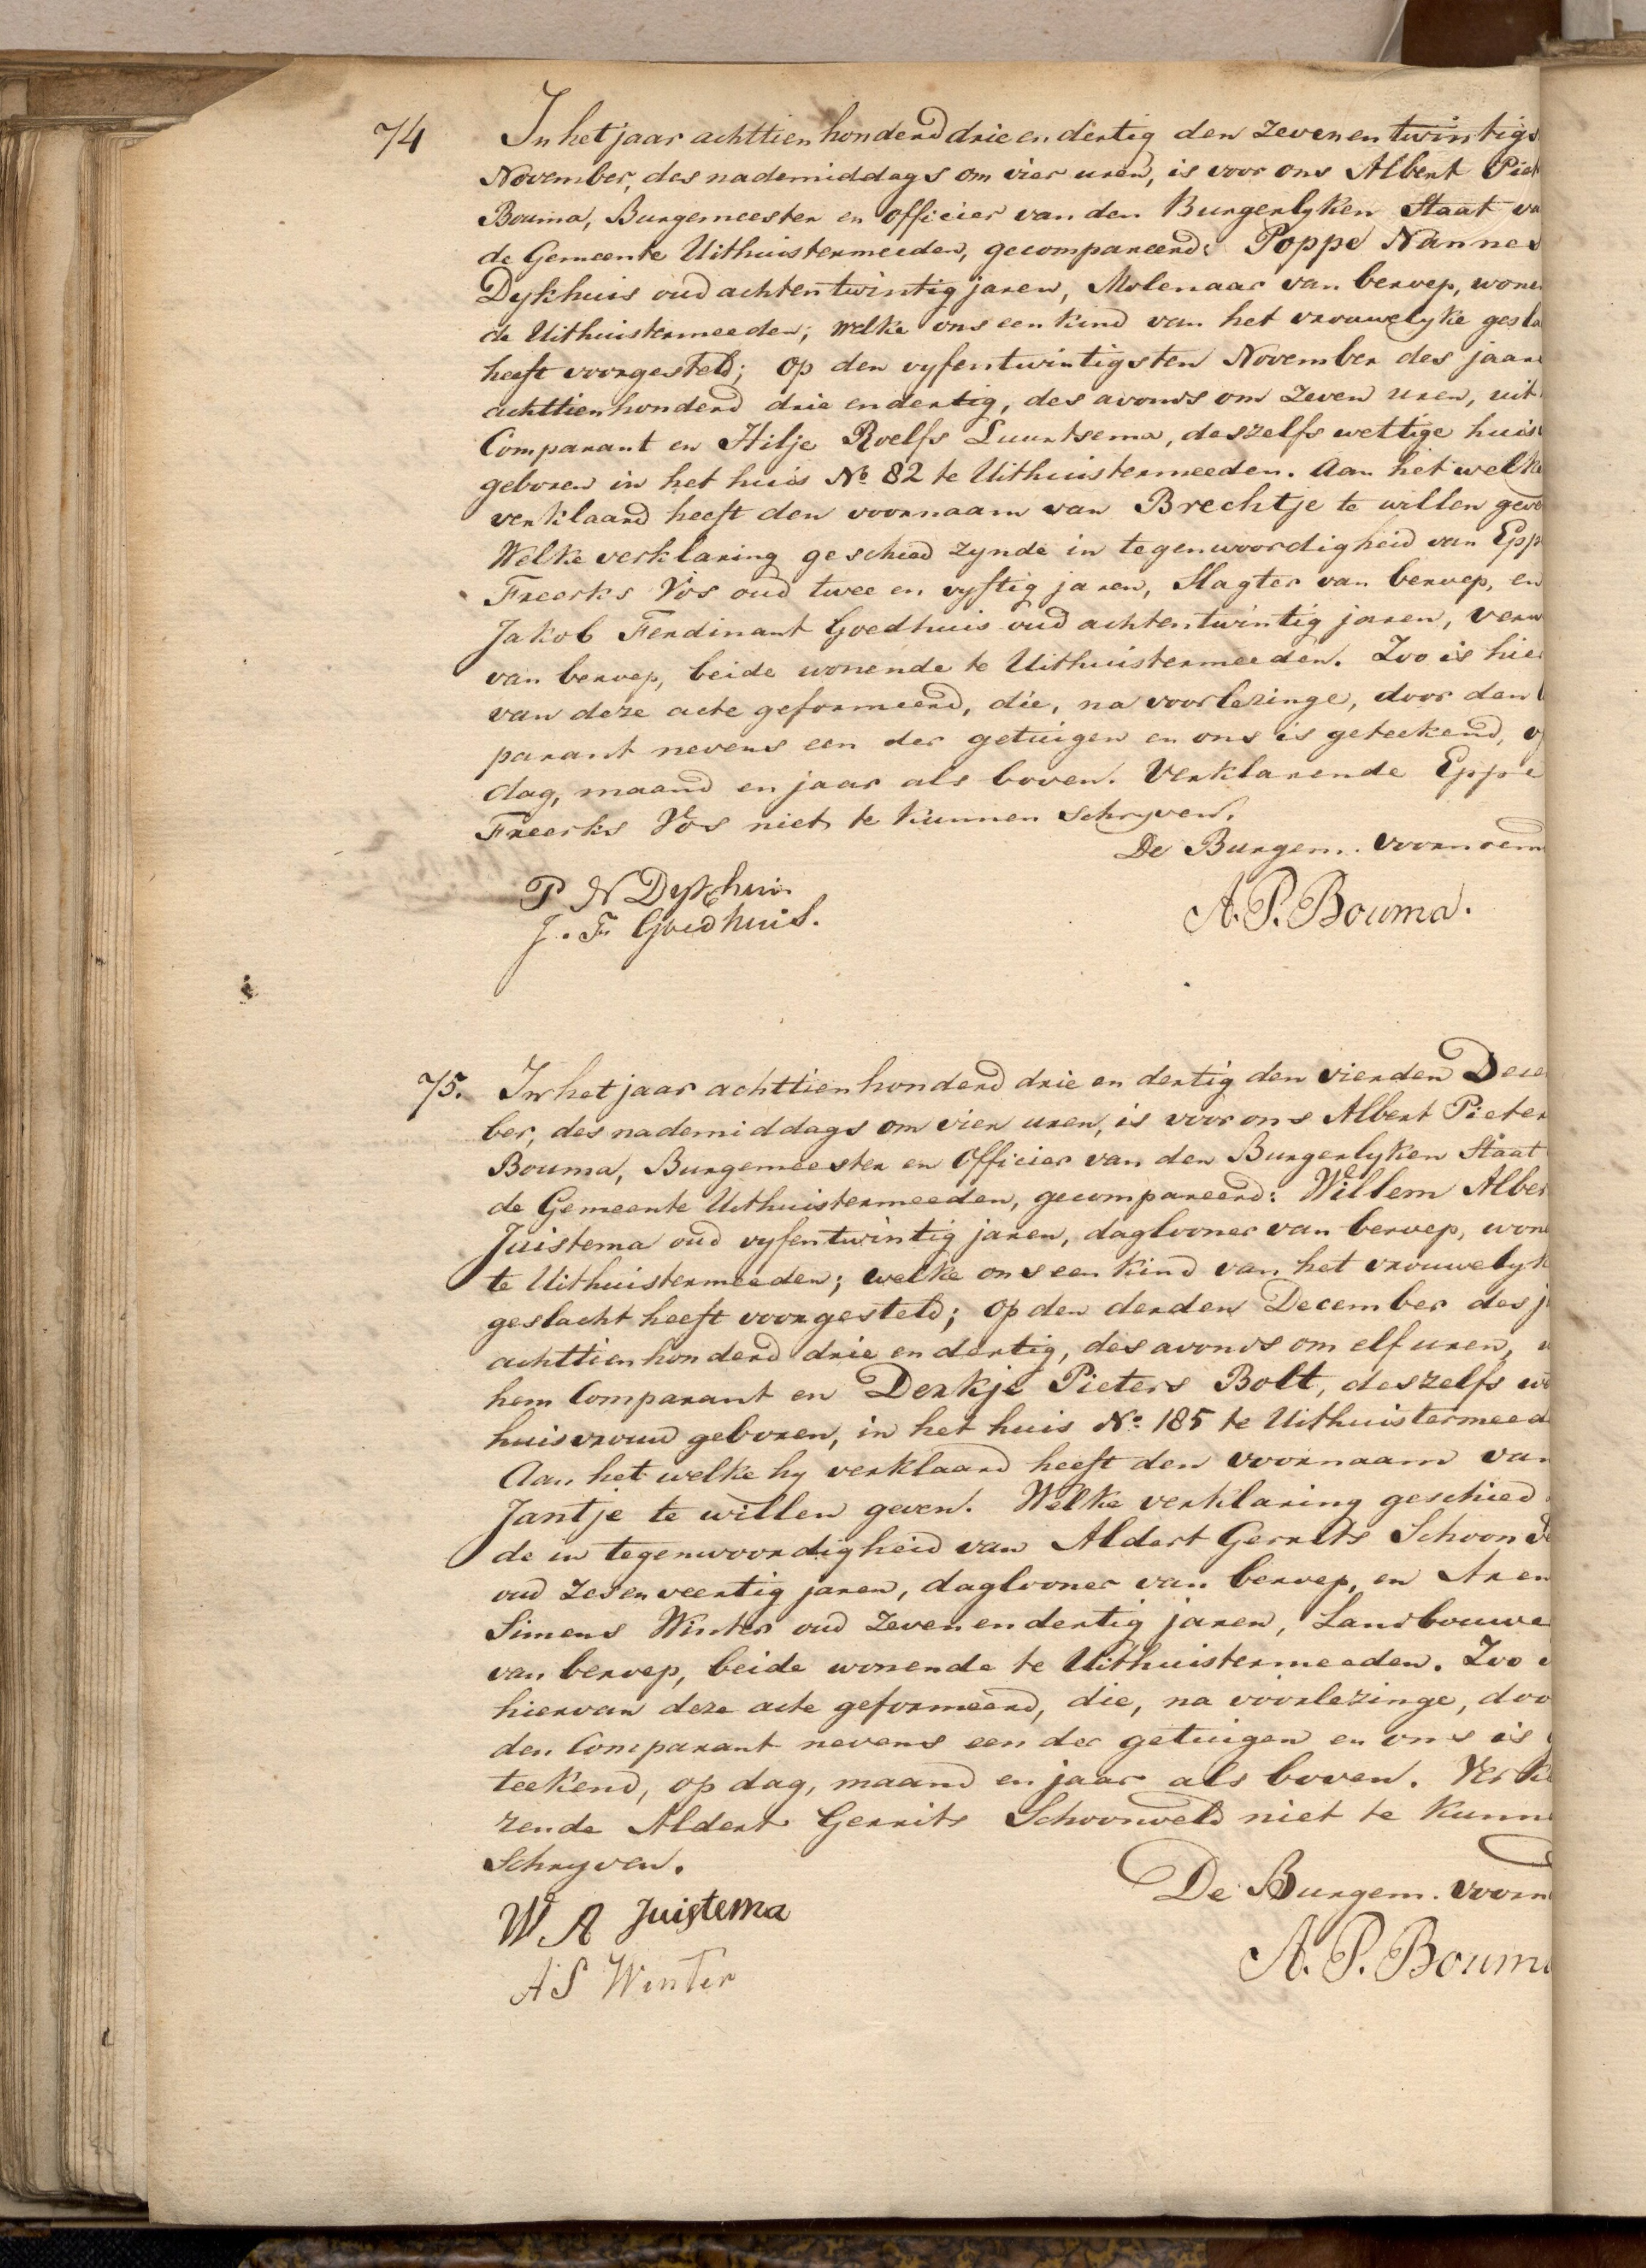 74
In het jaar achttien honderd drie en dertig den zeven en twintigs
November, des nademiddags om vier uren, is voor ons Albert Piet
Bouma, Burgemeester en Officier van den Burgerlyken Staat va
de Gemeente Uithuistermeeden, gecompareerd: Poppe Nannes
Dykhuis oud achtentwintig jaren, Molenaar van beroep, wone
de Uithuistermeeden; welke ons een kind van het vrouwelyke gesla
heeft voorgesteld; op den vyfentwintigsten November des jaars
achttienhonderd drie en dertig, des avonds om zeven uren, uit
Comparant en Hilje Roelfs Luurtsema, deszelfs wettige huis
geboren in het huis No 82 te Uithuistermeeden. Aan het welke
verklaard heeft den voornaam van Brechtje te willen geve
Welke verklaring geschied zynde in tegenwoordigheid van Epp
Freerks Vos oud twee en vyftig jaren, Slagter van beroep, en
Jakob Ferdinant Goedhuis oud achtentwintig jaren, verw
van beroep, beide wonende te Uithuistermeeden. Zoo is hier
van deze acte geformeerd, die, na voorlezinge, door den
parant nevens een der getuigen en ons is geteekend, op
dag, maand en jaar als boven. Verklarende Eppe
Freerks Vos niet te kunnen schryven.
De Burgem. voornoemd
P N Dykhuis
J. F. Goedhuis.
A. P. Bouma.
75.
In het jaar achttien honderd drie en dertig den vierden Dece
ber, des nademiddags om vier uren, is voor ons Albert Pieter
Bouma, Burgemeester en Officier van den Burgerlyken Staat
de Gemeente Uithuistermeeden, gecompareerd: Willem Alber
Juistema oud vyfentwintig jaren, daglooner van beroep, wone
te Uithuistermeeden; welke ons een kind van het vrouwelyk
geslacht heeft voorgesteld; op den derden December des j
achttienhonderd drie en dertig, des avonds om elf uren,
hem Comparant en Derkje Pieters Bolt, deszelfs we
huisvrouw geboren, in het huis No 185 te Uithuistermeed
Aan het welke hy verklaard heeft den voornaam van
Jantje te willen geven. Welke verklaring geschied
de in tegenwoordigheid van Aldert Gerrits Schoonve
oud zesenveertig jaren, daglooner van beroep, en Aren
Simens Winter oud zevenendertig jaren, Landbouwe
van beroep, beide wonende te Uithuistermeeden. Zoo
hiervan deze acte geformeerd, die, na voorlezinge, doo
den Comparant nevens een der getuigen en ons is
teekend, op dag, maand en jaar als boven. Verkla
rende Aldert Gerrits Schoonveld niet te kunne
schryven.
De Burgem. voorn
W A Juistema
A S Winter
A. P. Bouma